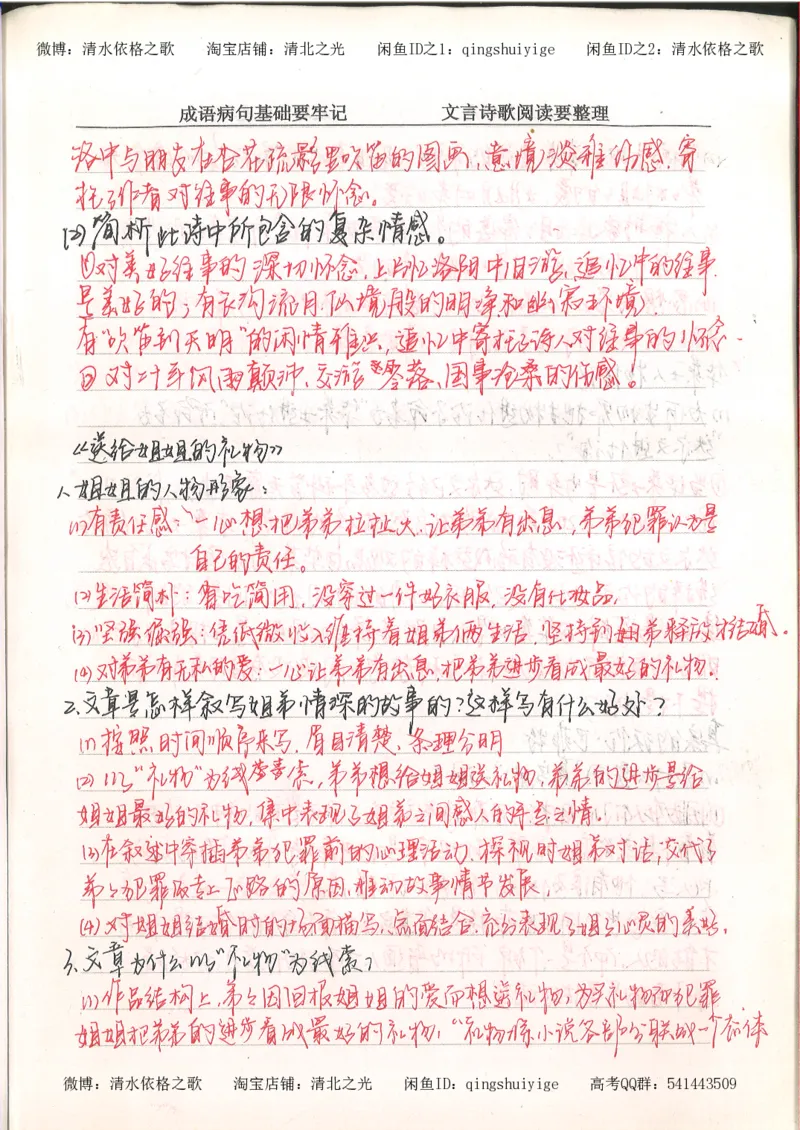 微博：清水依格之歌 淘宝店铺：清北之光 闲鱼ID之1：qingshuiyige 闲鱼ID之2：清水依格之歌
成语病句基础要牢记 文言诗歌阅读要整理
洛中与朋友在杏花疏影里吹笛的图画，意境淡雅伤感，寄
托了作者对往事的无限怀念。
(2)简析此诗中所包含的复杂情感。
①对美好往事的深切怀念，上片忆洛阳中旧游，追忆中的往事
是美好的；有长沟流月仙境般的明净和幽寂环境，
有"吹笛到天明"的闲情雅兴，追忆中寄托了诗人对往事的怀念。
②对二十年风雨颠沛，交游零落、国事沧桑的伤感。
《送给姐姐的礼物》
1、姐姐的人物形象：
(1)有责任感：一心想把弟弟拉扯大，让弟弟有出息，弟弟犯罪认为是
自己的责任。
(2)生活简朴：省吃简用，没穿过一件好衣服，没有化妆品，
(3)坚强倔强：凭低微收入维持着姐弟俩生活，坚持到姐弟释放才结婚。
(4)对弟弟有无私的爱：一心让弟弟有出息，把弟弟进步看成最好的礼物。
2.文章是怎样叙写姐弟情深的故事的？这样写有什么好处？
(1)按照时间顺序来写，眉目清楚、条理分明
(2)以"礼物"为线索贯串，弟弟想给姐姐送礼物，弟弟的进步是给
姐姐最好的礼物，集中表现了姐弟之间感人的手足之情。
(3)在叙述中穿插弟弟犯罪前的心理活动，探视时姐弟对话，交代了
弟弟犯罪及走上正路的原因，推动故事情节发展，
(4)对姐姐结婚时的场面描写，点面结合，充分表现了姐姐心灵的美好。
3.文章为什么以"礼物"为线索？
(1)作品结构上，弟弟因回报姐姐的爱而想送礼物，为买礼物而犯罪
姐姐把弟弟的进步看成最好的礼物，"礼物"将小说各部分联成一个整体
微博：清水依格之歌 淘宝店铺：清北之光 闲鱼ID：qingshuiyige 高考QQ群：541443509